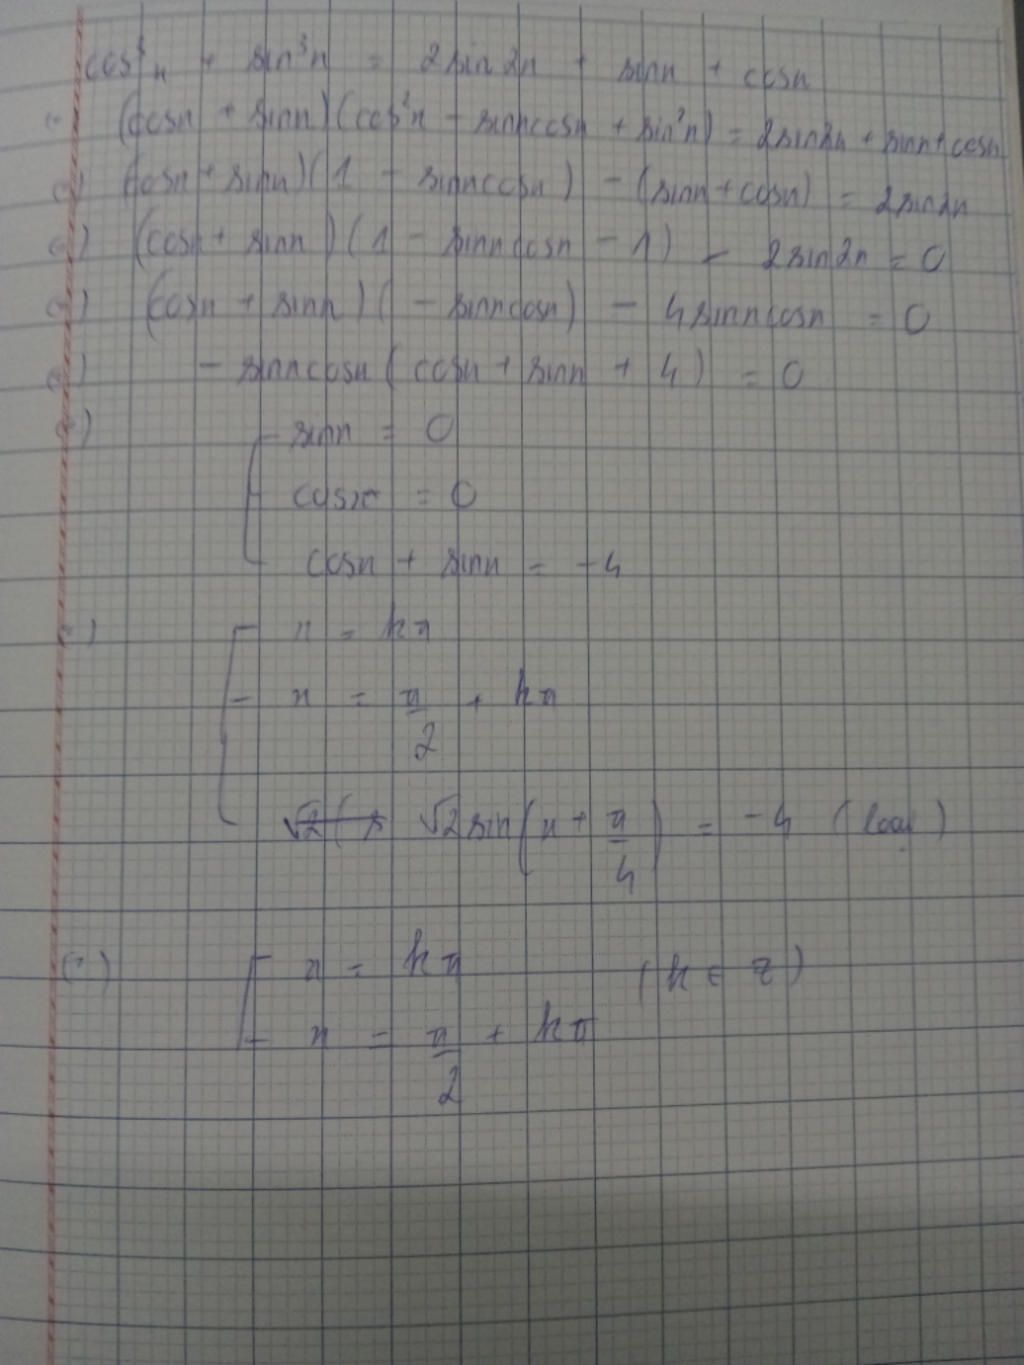 cos³x + sin³x = 2sin2x + sinx + cosx
(=) (cosx + sinx)(cos²x - sinxcosx + sin²x) = 2sin2x + sinx + cosx
(=) (cosx + sinx)(1 - sinxcosx) - (sinx + cosx) = 2sin2x
(=) (cosx + sinx)(1 - sinxcosx - 1) - 2sin2x = 0
(=) (cosx + sinx)(- sinxcosx) - 4sinxcosx = 0
(=) - sinxcosx (cosx + sinx + 4) = 0
(=) sinx = 0
cosx = 0
cosx + sinx = -4
(=) x = kπ
x = π/2 + kπ
√2 sin(x + π/4) = -4 (loại)
(=) x = kπ (k ∈ Z)
x = π/2 + kπ